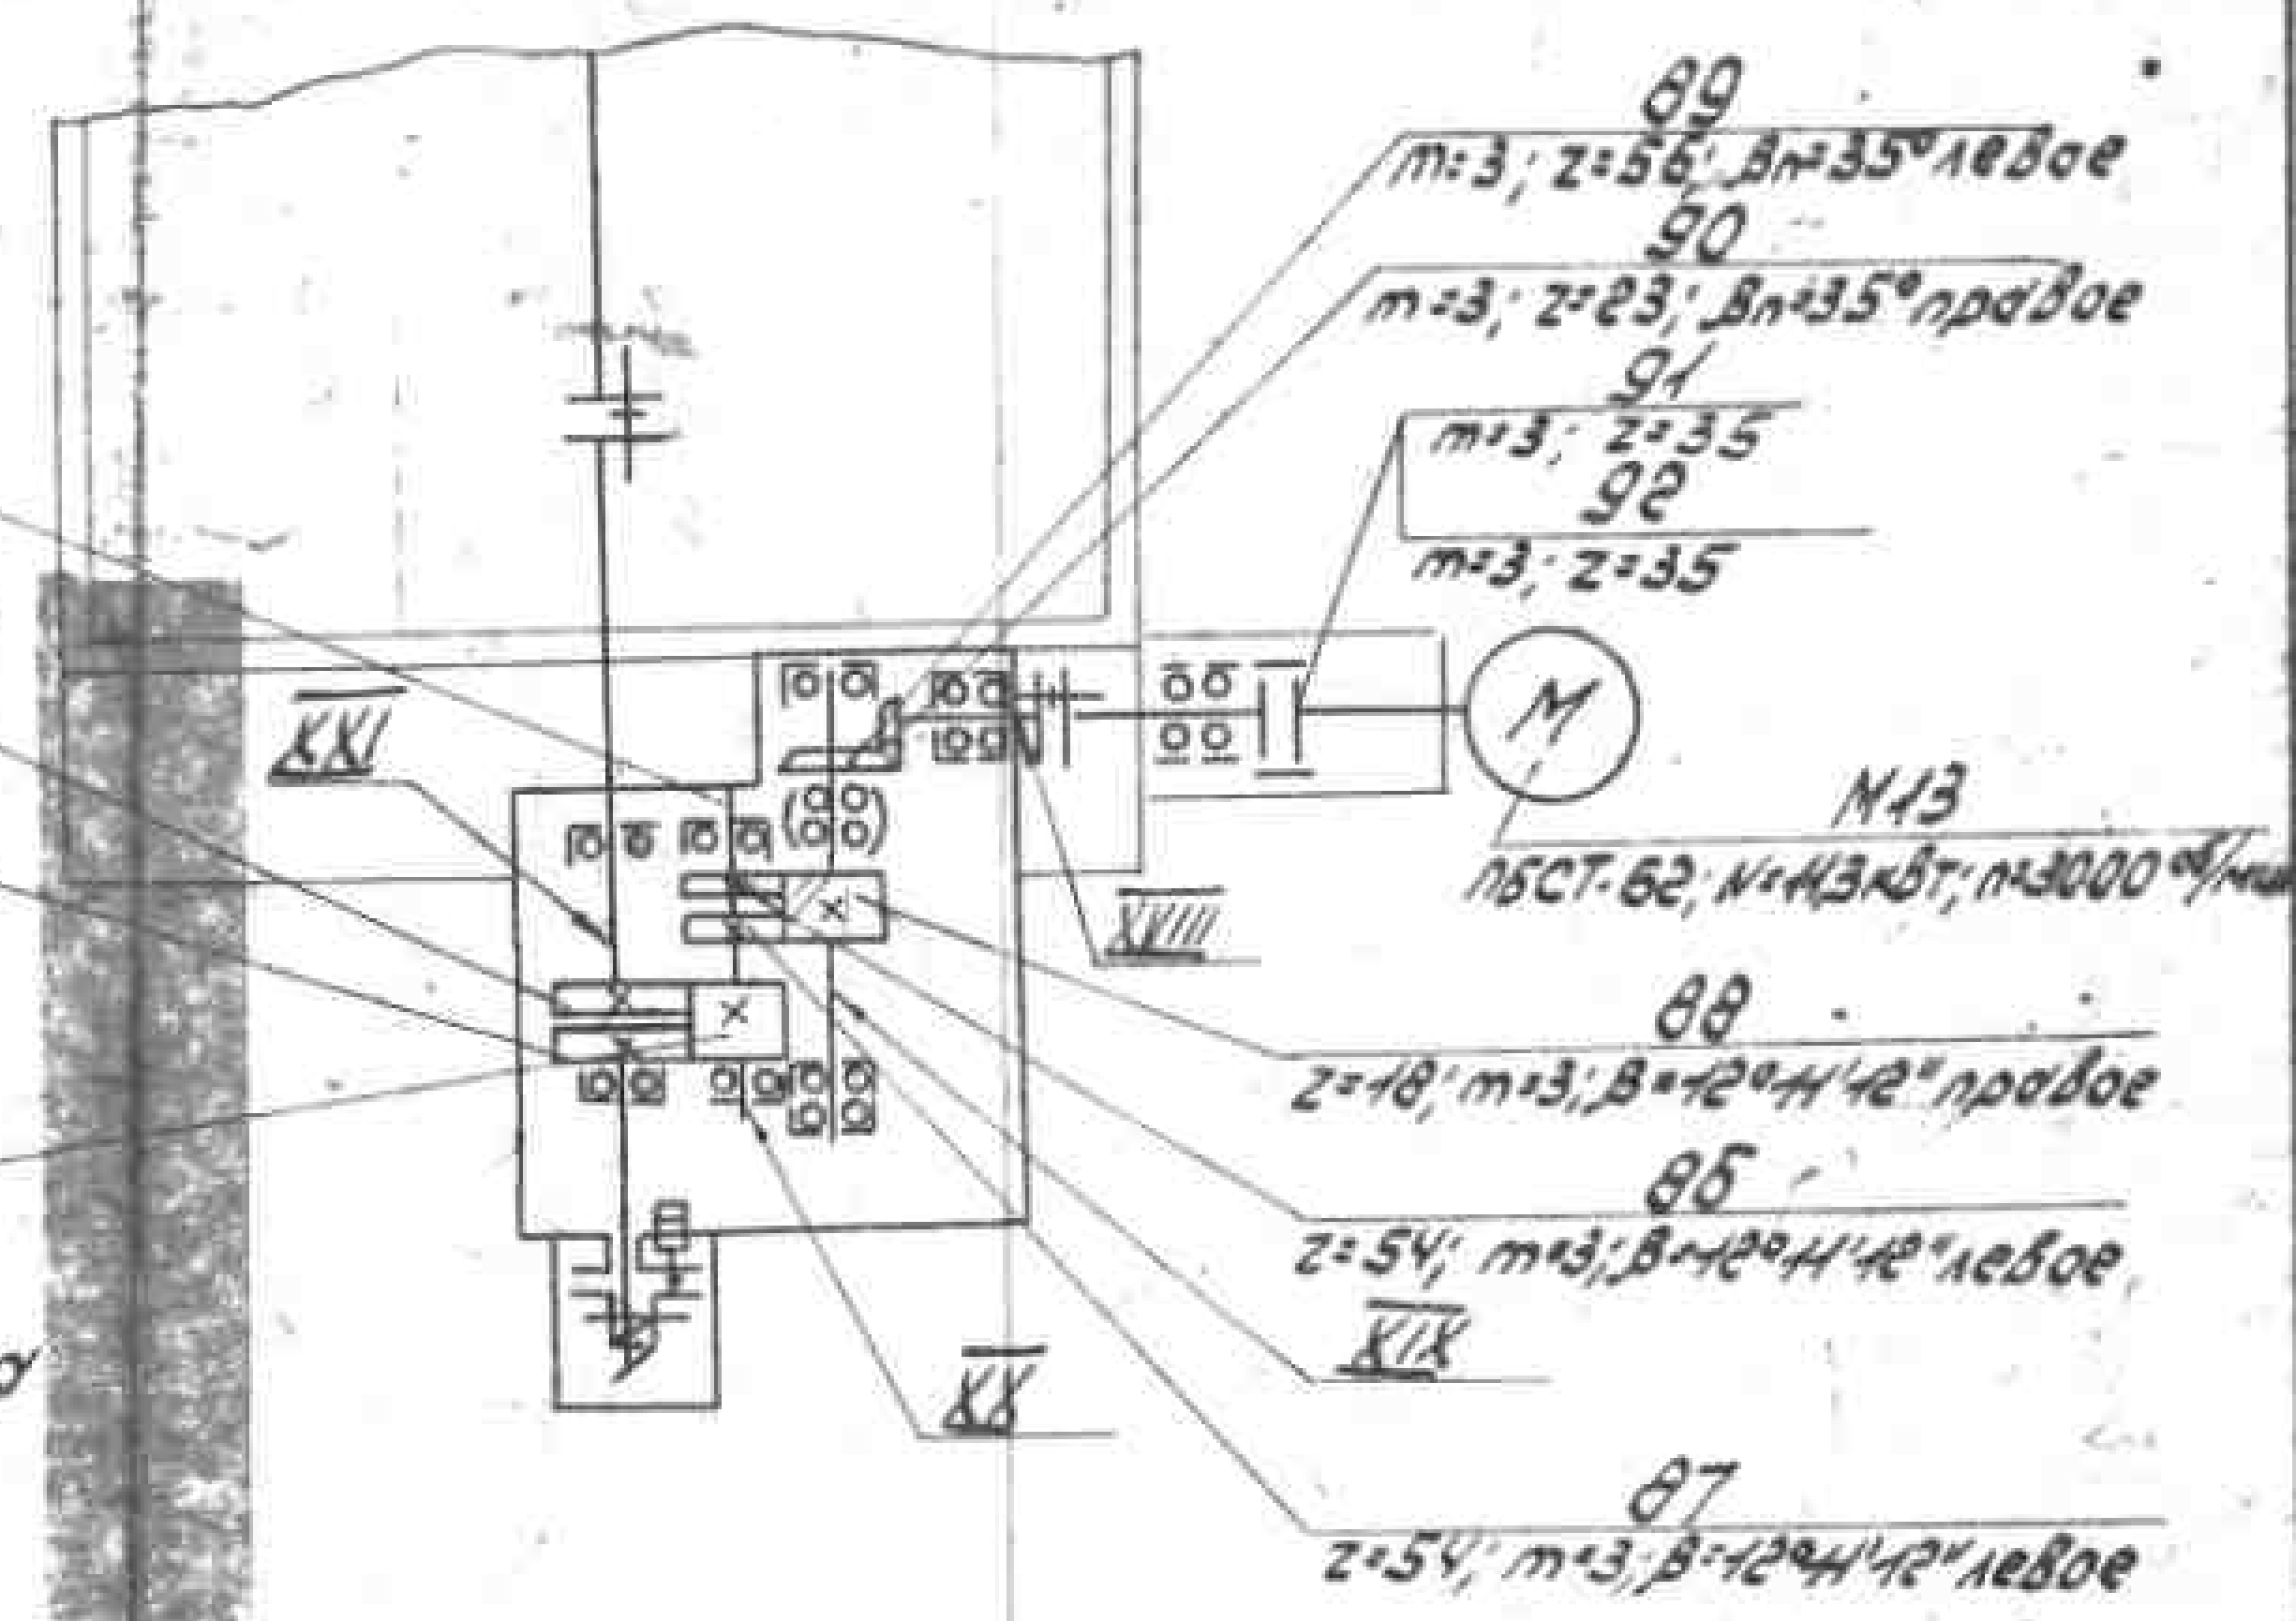 89
m=3; z=56; βn=35° левое
90
m=3; z=23; βn=35° правое
91
m=3; z=35
92
m=3; z=35
XXI
М
М13
ПБСТ-62; N=11,3 кВт; n=3000 об/мин
XVIII
88
z=18; m=3; β=12°11'12" правое
86
z=54; m=3; β=12°11'12" левое
XIX
XX
87
z=54; m=3; β=12°11'12" левое